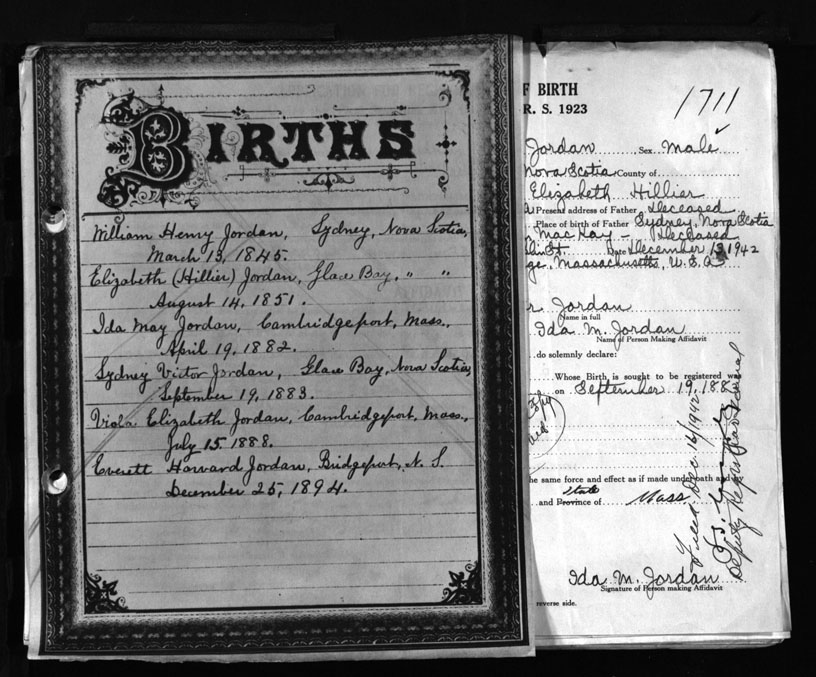 BIRTHS
William Henry Jordan, Sydney, Nova Scotia,
March 13, 1845.
Elizabeth (Hillier) Jordan, Glace Bay, " "
August 14, 1851.
Ida May Jordan, Cambridgeport, Mass.,
April 19, 1882.
Sydney Victor Jordan, Glace Bay, Nova Scotia,
September 19, 1883.
Viola Elizabeth Jordan, Cambridgeport, Mass.,
July 15 1888.
Everett Harvard Jordan, Bridgeport, N. S.
December 25, 1894.
F BIRTH
R. S. 1923
1711
Jordan Sex Male
Nova Scotia County of
Elizabeth Hillier
Present address of Father Deceased
Place of birth of Father Sydney, Nova Scotia
MacKay - Deceased
St. Date December 1942
ge, Massachusetts, U.S.A.
r Jordan
Name in full
Ida M. Jordan
Name of Person Making Affidavit
do solemnly declare:
Whose Birth is sought to be registered was
on September 19, 188
he same force and effect as if made under oath and
State
and Province of Mass
Filed Dec. 16/1942
Deputy Registrar General
Ida M. Jordan
Signature of Person making Affidavit
reverse side.